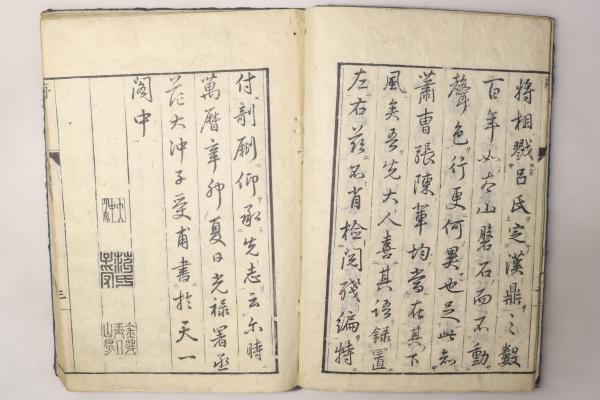 將相戮呂氏定漢鼎之數
百年如太山磐石而不動
聲色行更何異也足此知
蕭曹張陳輩均當在其下
風矣吾先大人喜其語錄置
左右茲不肖檢閱殘編特
付剞劂仰承先志云尓時
萬曆辛卯夏日光祿署丞
范大沖子受甫書於天一
閣中
三
三